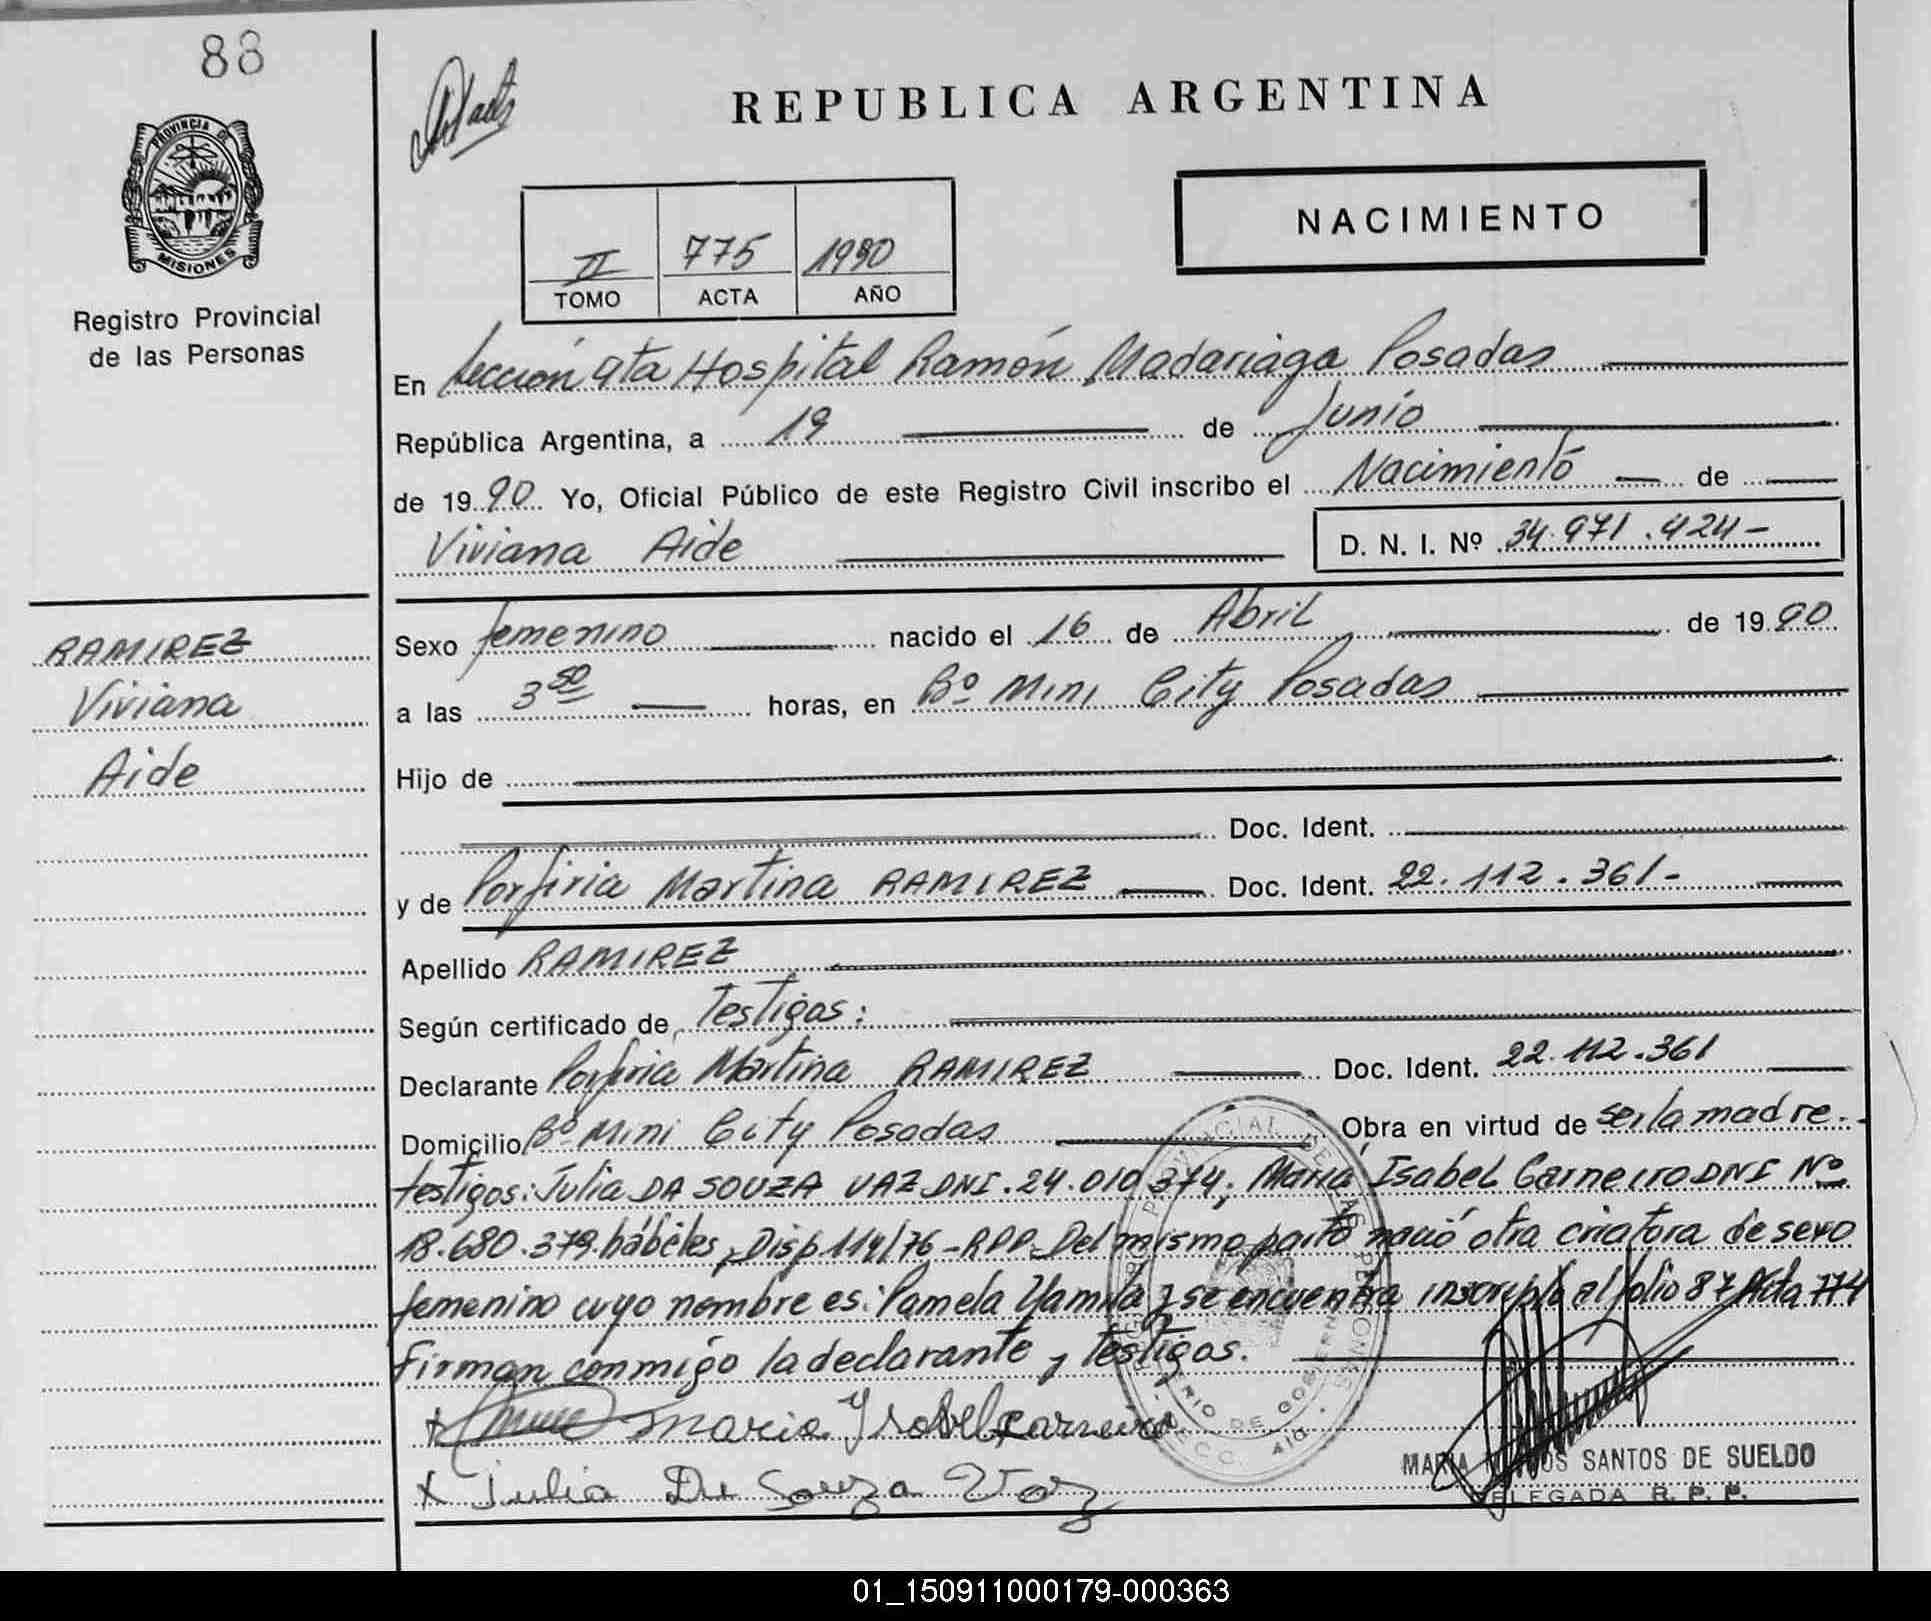 88
REPUBLICA ARGENTINA
PROVINCIA DE
MISIONES
Registro Provincial
de las Personas
NACIMIENTO
II 775 1990
TOMO ACTA AÑO
En Sección 9ta Hospital Ramón Madariaga Posadas
República Argentina, a 19 de Junio
de 1990 Yo, Oficial Público de este Registro Civil inscribo el Nacimiento de
Viviana Aide D. N. I. Nº 34.971.424-
RAMIREZ
Viviana
Aide
Sexo femenino nacido el 16 de Abril de 1990
a las 3 50 horas, en Bº Mini City Posadas
Hijo de
Doc. Ident.
y de Porfiria Martina RAMIREZ Doc. Ident. 22.112.361-
Apellido RAMIREZ
Según certificado de Testigos:
Declarante Porfiria Martina RAMIREZ Doc. Ident. 22.112.361
Domicilio Bº Mini City Posadas Obra en virtud de ser la madre.-
testigos: Julia DA SOUZA VAZ DNI. 24.010.374; María Isabel Carneiro DNI Nº
18.680.379. hábiles, Disp 114/76 - RPP. Del mismo parto nació otra criatura de sexo
femenino cuyo nombre es: Pamela Yamila y se encuentra inscripto al folio 87 Acta 774
Firman conmigo la declarante y testigos.
x Maria Ysabel Carneiro
x Julia De Souza Vaz
MARIA SANTOS DE SUELDO
DELEGADA R. P. P.
01_150911000179-000363